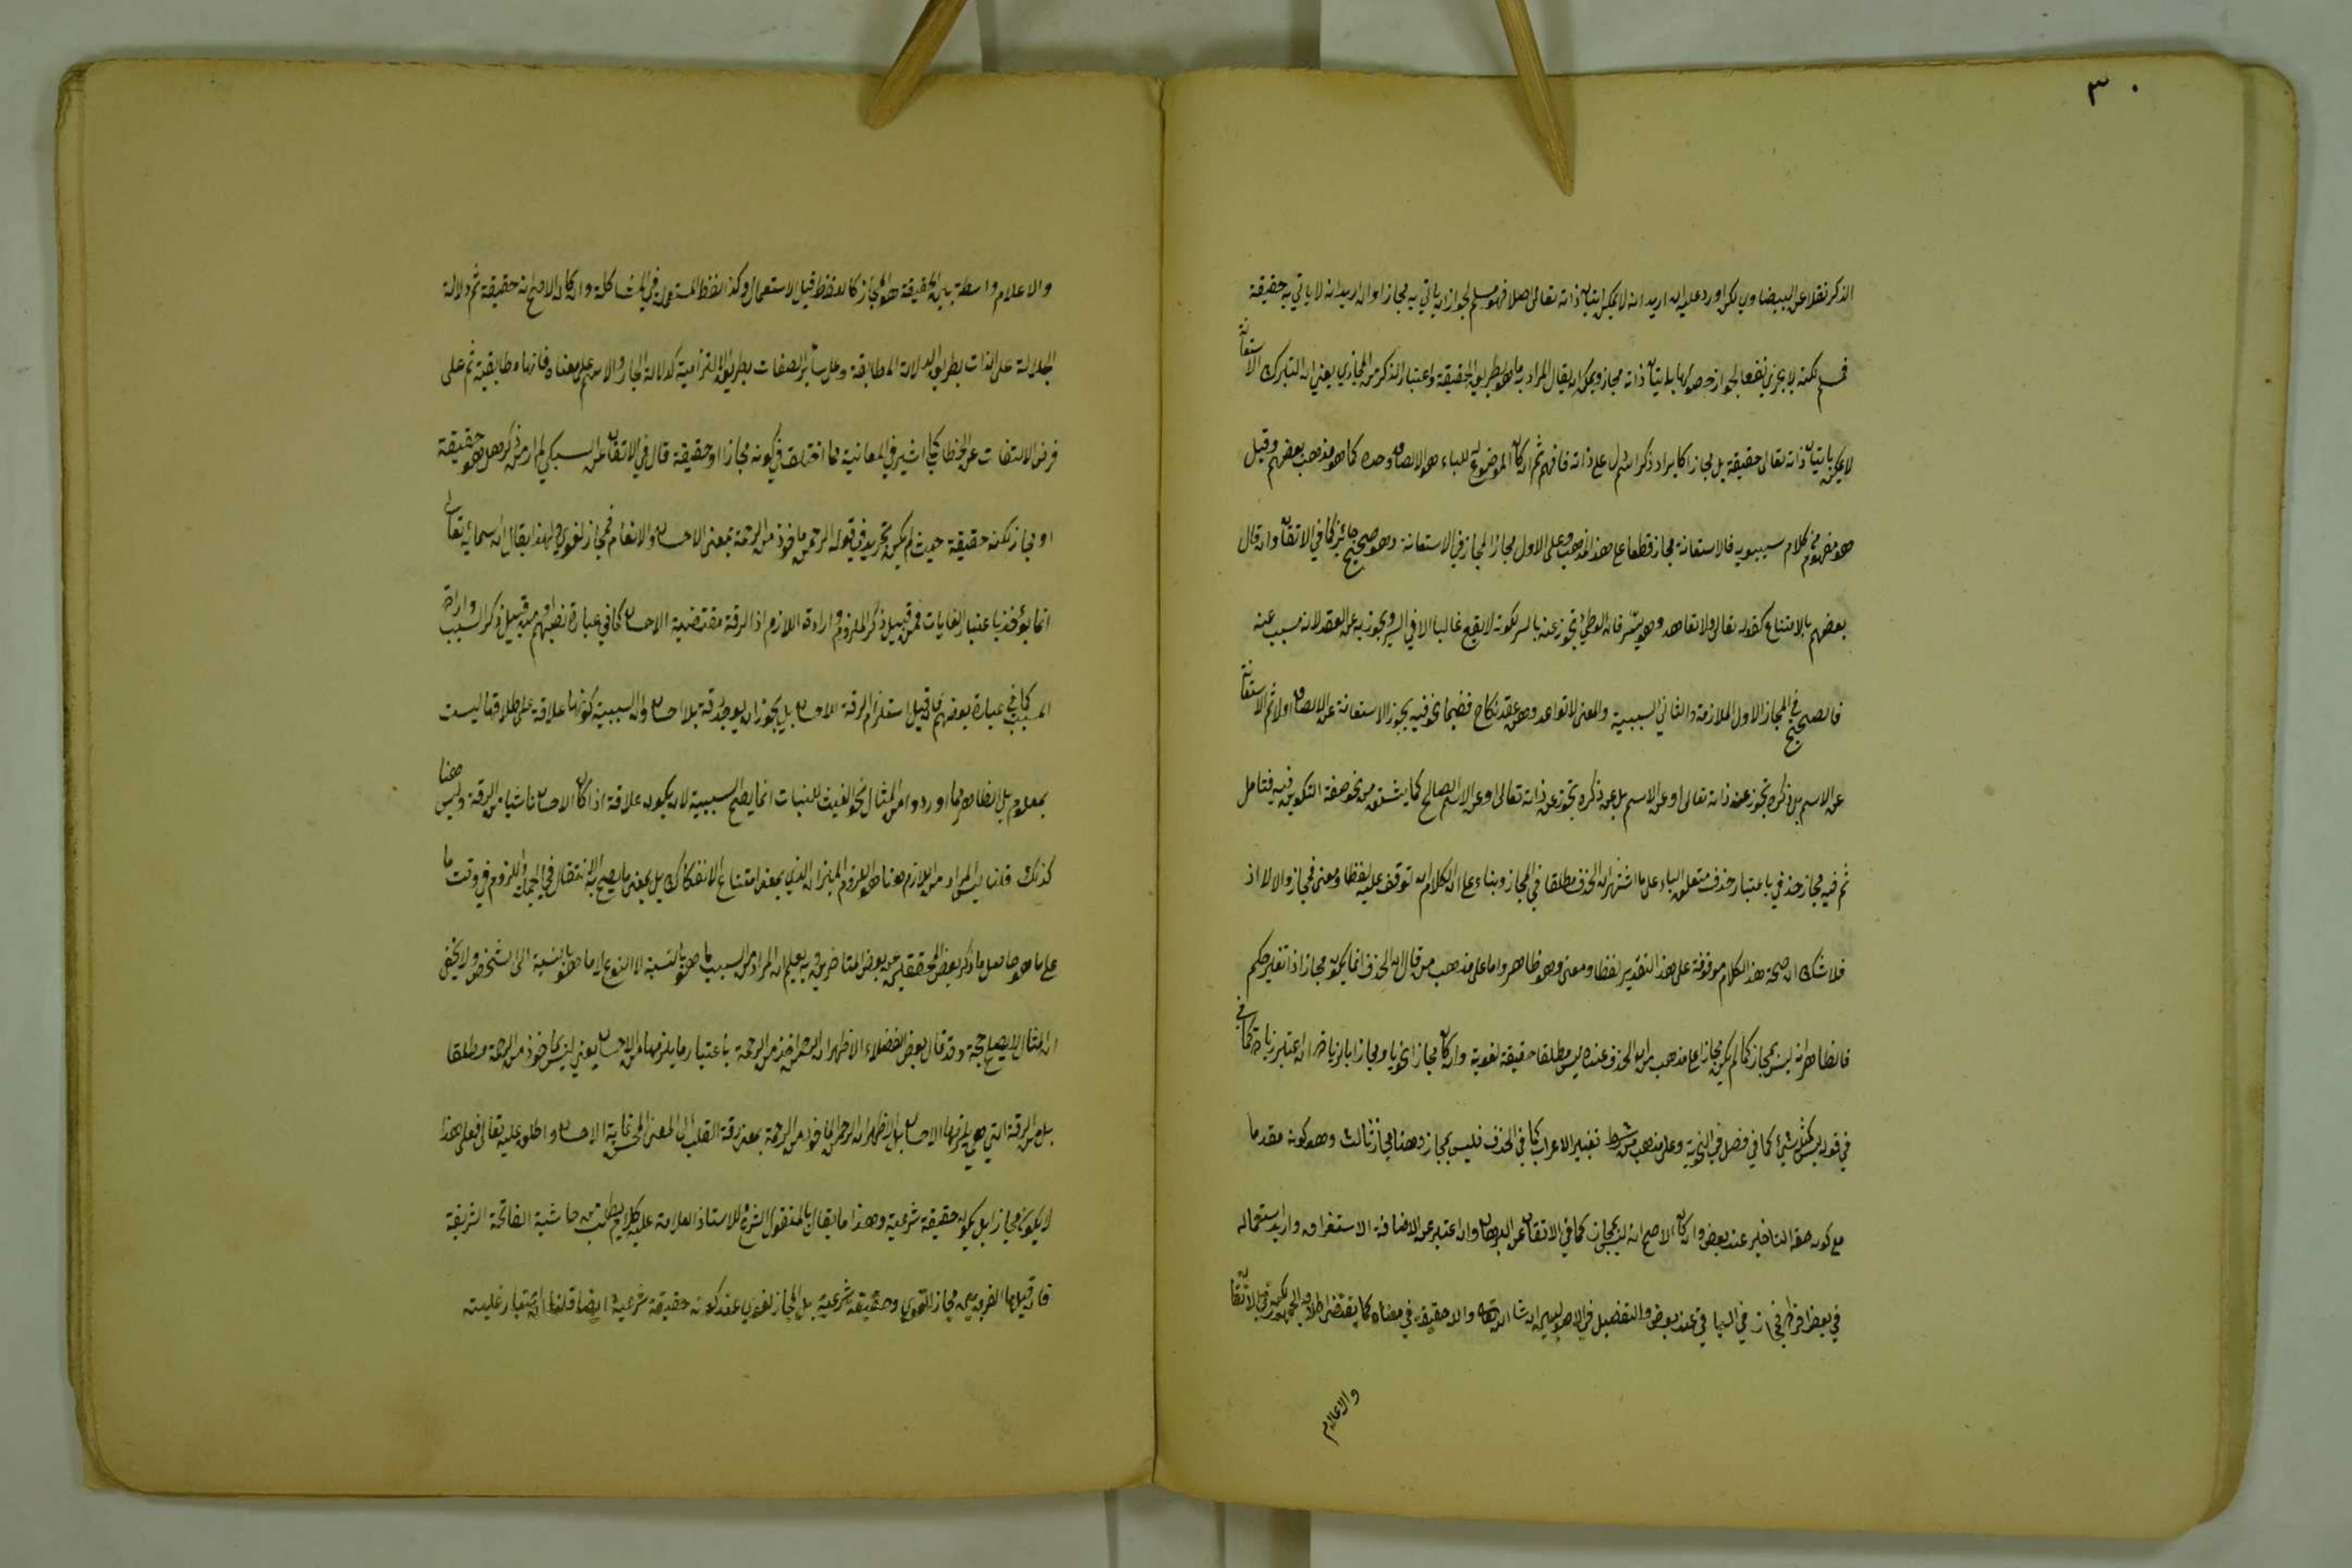 ٣٠
الذكر نقلا عن البيضاوي لكن اورد عليه ان اريد انه لا يمكن اتيان ذاته تعالى اصلا فهو مسلم لجواز ان ياتي به مجازا وان اريد انه لا ياتي به حقيقة
فمسلم لكنه لا يجري نفعا لجواز حصولها باتيان ذاته مجاز ويمكن ان يقال المراد به ما هو بطريق الحقيقة واعتبار الذكر من المجازي يعني ان التبرك الاستعانة
لا يمكن باتيان ذاته تعالى حقيقة بل مجازا كايراد ذكر اسم دل على ذاته فافهم ثم ان كان الموضوع له للباء هو الالصاق وحده كما هو مذهب بعضهم وقيل
هو مفهوم من كلام سيبويه فالاستعانة مجاز قطعا على هذا المذهب وعلى الاول مجاز المجاز في الاستعانة وهو صحيح جائز كما في الاتقان وان قال
بعضهم بالامتناع كقوله تعالى ولا تواعدوهن سرا فان الوطئ تجوز عنه بالسر لكونه لا يقع غالبا الا في السر وتجوز به عن العقد لانه مسبب عنه
فالصحيح في المجاز الاول الملازمة والثاني السببية والمعنى لا تواعدوهن عقد نكاح ففيما نحن فيه تجوز الاستعانة عن الالصاق اولا ثم الاستعانة
عن الاسم بل ذكره تجوز عنه ذاته تعالى او عن الاسم بل عن ذكره تجوز عن ذاته تعالى او عن الاسم الصالح كما يشتق من نحو صفة التكوين فيه فتامل
ثم فيه مجاز حذفي باعتبار حذف متعلق الباء على ما اشتهر ان الحذف مطلقا في المجاز وبناء على ان الكلام ان توقف عليه لفظا ومعنى فمجاز والا لا اذ
فلا شك ان صحة هذا الكلام موقوفة على هذا التقدير لفظا ومعنى وهو ظاهر واما على مذهب من قال ان الحذف انما يكون مجازا اذا تغير حكم
فالظاهر انه ليس بمجاز كما لم يكن مجازا على مذهب من الحذف عنده ليس مطلقا حقيقة لغوية وان كان مجازا نحويا ومجازا بالزيادة ان اعتبر زيادة كما في
في قوله ليس كمثله شئ كما في فصل في النحوية وعلى مذهب من شرط تغيير الاعراب كما في الحذف فليس بمجاز وههنا مجاز ثالث وهو كونه مقدما
مع كون حقه التاخير عند بعض وان كان الاصح انه ليس بمجاز كما في الاتقان عن البرهان وان اعتبر من الاضافة الاستغراق واريد استعماله
في بعض افراد فمجاز في الباقي عند بعض والتفصيل في الاصوليين ان شاء الله تعالى والا حقيقة في معناه كما يقتضي اطلاق الجمهور لكن في الاتقان
والاعلام
والاعلام واسطة بين الحقيقة والمجاز كاللفظ قبل الاستعمال وكذا اللفظ المستعمل في المشاكلة وان كان الاصح انه حقيقة ثم دلالة
الجلالة على الذات بطريق الدلالة المطابقة وعلى سائر الصفات بطريق الالتزامية كدلالة الجار والاسم على معناه فانها مطابقية ثم على
فرض الالتفات عن الخطاب كما اشير في المعانية مما اختلف في كونه مجازا او حقيقة قال في الاتقان عن السبكي لم ار من ذكر هل هو حقيقة
او مجاز لكنه حقيقة حيث لم يكن تجريد في قوله الرحمن ماخوذ من الرحمة بمعنى الاحسان والانعام فمجاز لغوي ولهذا يقال ان اسمائه تعالى
انما يؤخذ باعتبار الغايات فمن قبيل ذكر الملزوم وارادة اللازم اذ الرقة مقتضية الاحسان كما في عبارة بعضهم او من قبيل ذكر السبب وارادة
المسبب كما في عبارة بعضهم فان قيل استلزام الرقة الاحسان بل يجوز ان يوجد رقة بلا احسان والسببية كونها علاقة على اطلاقها ليست
بمعلوم بل الظاهر مما اوردوا من المثال نحو الغيث للنبات انما يصح السببية لان يكون علاقة اذا كان الاحسان ناشيا من الرقة وليس ههنا
كذلك قلنا ليس المراد من اللازم هنا هو اللزوم الميزاني الذي بمعنى امتناع الانفكاك بل بمعنى ما يصح به الانتقال في الجملة واللزوم في وقت ما
على ما هو حاصل ما ذكر بعض المحققين عن بعض المتاخرين وبه يعلم ان المراد من السبب ما هو بالنسبة الى النوع لا ما هو بالنسبة الى الشخص ولا يخفى
ان المثال لا يصلح حجة وقد قال بعض الفضلاء الاظهر ان الرحمن اخذ من الرحمة باعتبار ما يلزمها من الاحسان يعني ليس ماخوذ من الرحمة مطلقا
بل من الرقة التي هي يلزمها الاحسان بل الاظهر ان الرحمن ماخوذ من الرحمة بمعنى رقة القلب الى المعنى الغاية الاحسان واطلق عليه تعالى فعلى هذا
لا يكون مجازا بل يكون حقيقة شرعية وهذا ما يقال بالمنقول الشرعي للاستاذ العلامة عليه كلام يطلب من حاشية الفاتحة الشريفة
فان قيل ما الفرق بين مجاز اللغوي وحقيقة شرعية بل المجاز لغوي عند كونه حقيقة شرعية ايضا قلنا ان اعتبار غلبته